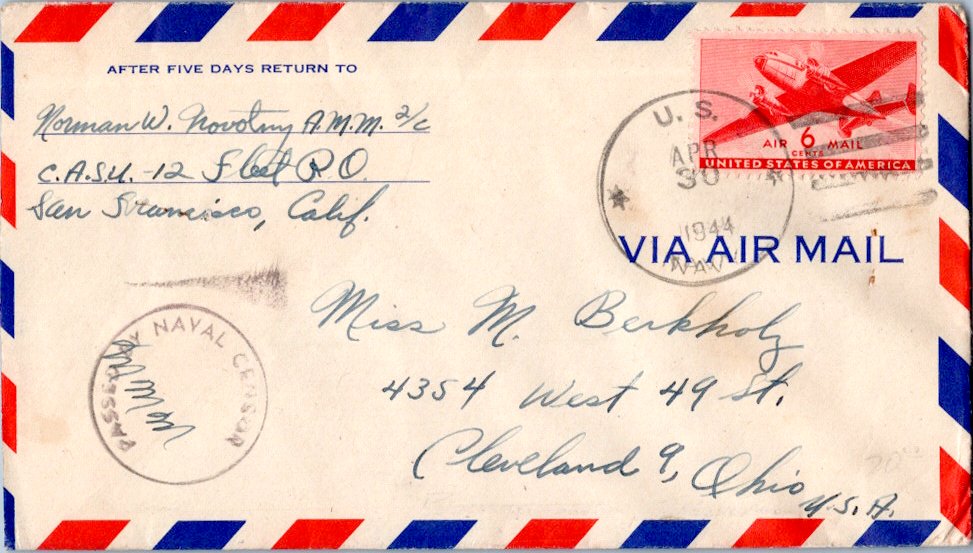 AFTER FIVE DAYS RETURN TO
Norman W. Novotny A.M.M. 2/c
C.A.S.U. -12 Fleet P.O.
San Francisco, Calif.
AIR 6 MAIL
CENTS
UNITED STATES OF AMERICA
U. S.
APR
30
1944
NAVY
VIA AIR MAIL
PASSED BY NAVAL CENSOR
Miss M. Berkholz
4354 West 49 St.
Cleveland 9, Ohio
U.S.A.